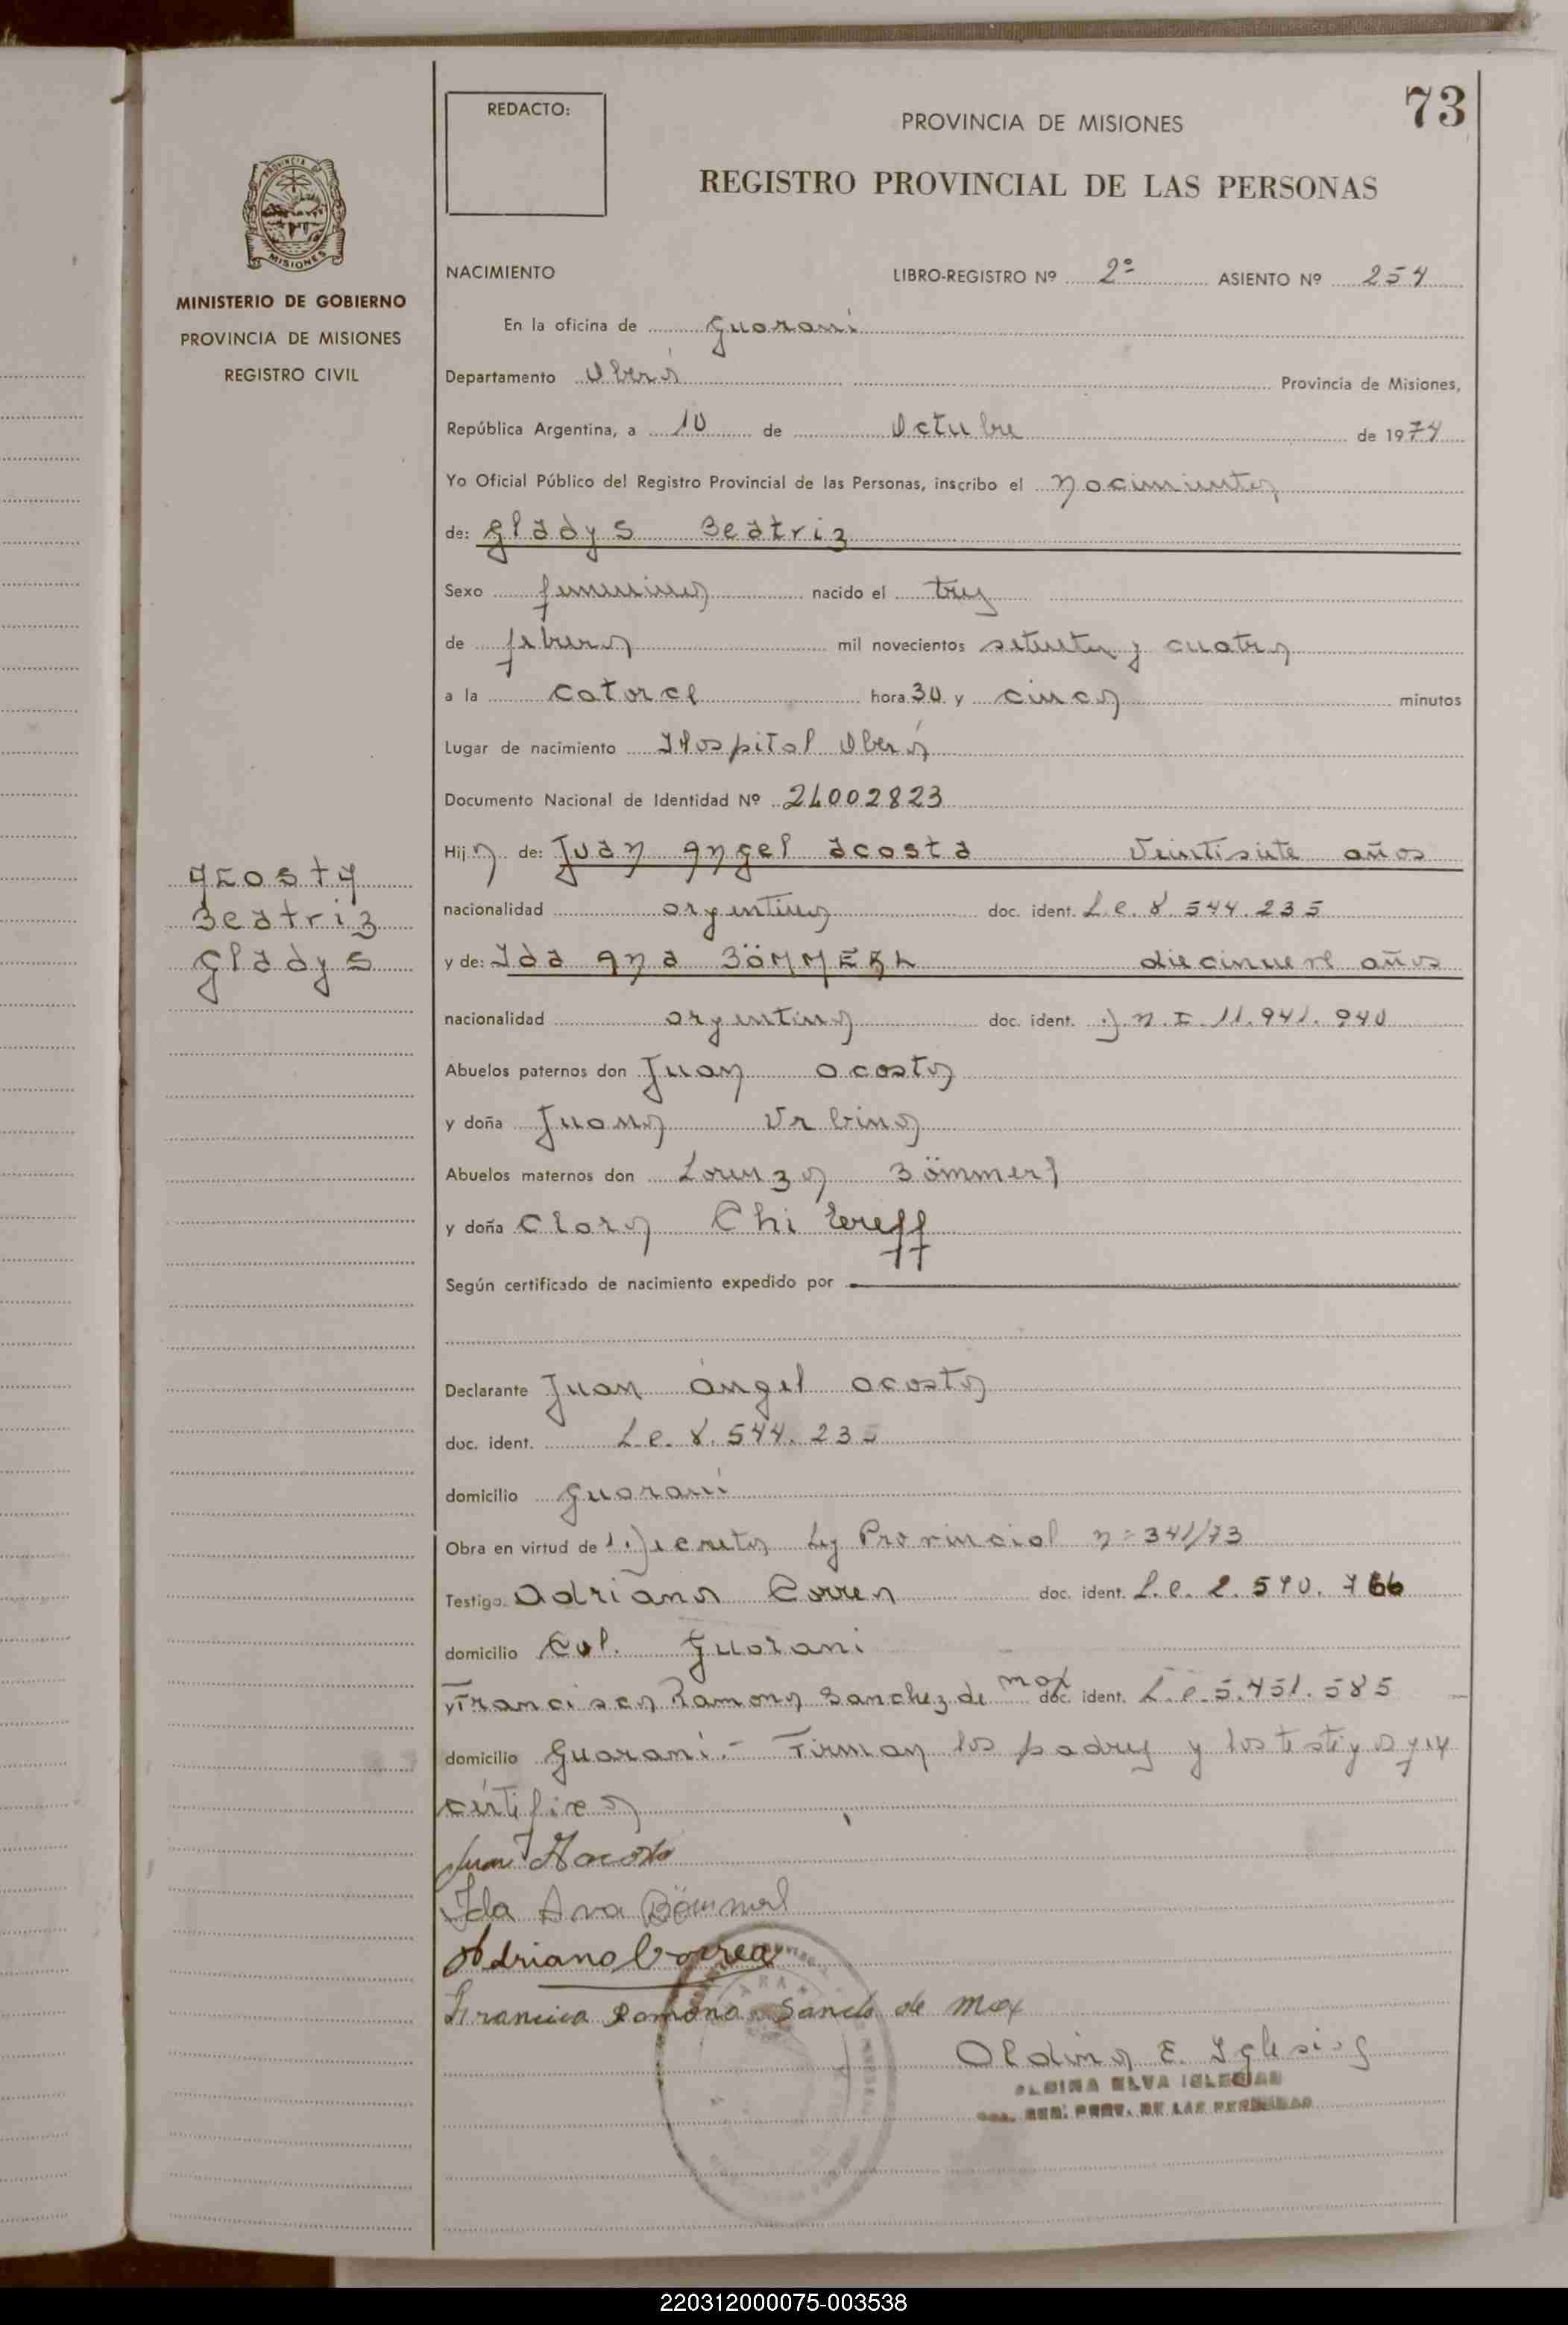 73
REDACTO:
PROVINCIA DE MISIONES
REGISTRO PROVINCIAL DE LAS PERSONAS
PROVINCIA DE
MISIONES
MINISTERIO DE GOBIERNO
PROVINCIA DE MISIONES
REGISTRO CIVIL
NACIMIENTO LIBRO-REGISTRO Nº 2º ASIENTO Nº 254
En la oficina de Guaraní
Departamento Oberá Provincia de Misiones,
República Argentina, a 10 de Octubre de 1974
Yo Oficial Público del Registro Provincial de las Personas, inscribo el nacimiento
de: Gladys Beatriz
Sexo femenino nacido el tres
de febrero mil novecientos setenta y cuatro
a la catorce hora 30 y cinco minutos
Lugar de nacimiento Hospital Oberá
Documento Nacional de Identidad Nº 24002823
Hija de: Juan Angel acosta Veintisiete años
acosta
Beatriz
Gladys
nacionalidad argentina doc. ident. L.e. 8.544.235
y de: Ida Ana BÖMMERL diecinueve años
nacionalidad argentina doc. ident. D.N.I. 11.941.940
Abuelos paternos don Juan acosta
y doña Juana Urbina
Abuelos maternos don Lorenzo Bömmerl
y doña Clara
Según certificado de nacimiento expedido por
Declarante Juan ángel acosta
doc. ident. L.e. 8.544.235
domicilio Guaraní
Obra en virtud de Decreto Ley Provincial nº 341/73
Testigo Adriano Correa doc. ident. L.e. 2.590.766
domicilio Col. Guarani
y Francisca Ramona Sanchez de Max doc. ident. L.e. 5.451.585
domicilio Guarani.- Firman los padres y los testigos que
certifico
Juan A Acosta
Ida Ana Bömmerl
Adriano Correa
Francisca Ramona Sanch de Max
Aldina E. Iglesias
ALDINA ELVA IGLESIAS
REG. PROV. DE LAS PERSONAS
220312000075-003538